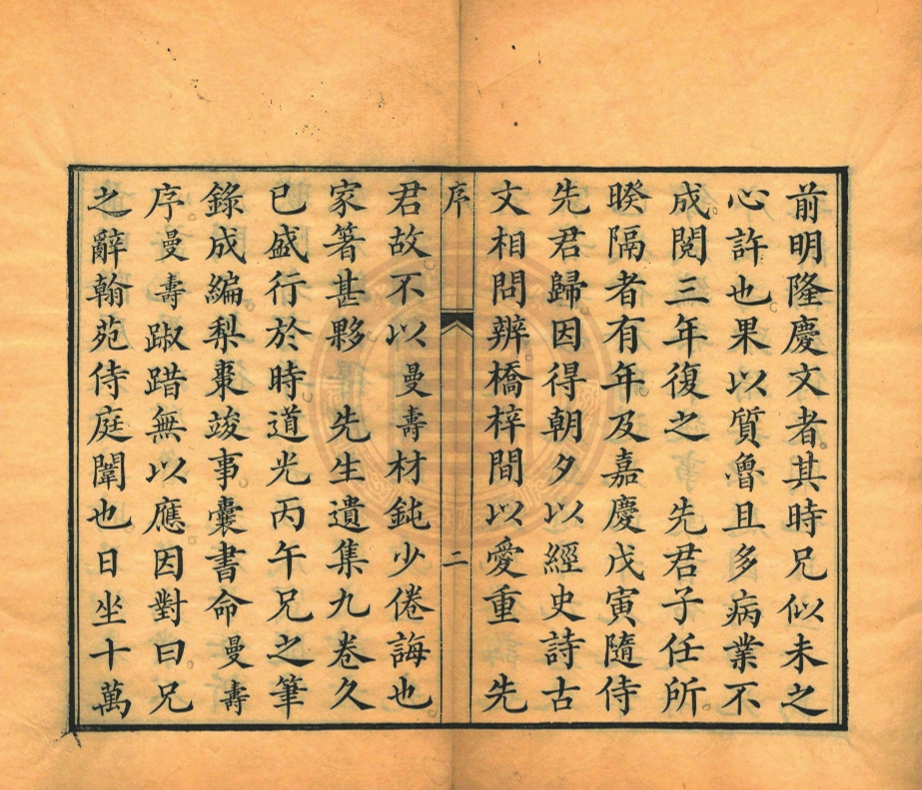 前明隆慶文者其時兄似未之
心許也果以質魯且多病業不
成閱三年復之　先君子任所
暌隔者有年及嘉慶戊寅隨侍
先君歸因得朝夕以經史詩古
文相問辨橋梓間以愛重　先
序　二
君故不以曼壽材鈍少倦誨也
家箸甚夥　先生遺集九卷久
已盛行於時道光丙午兄之筆
錄成編梨棗竣事囊書命曼壽
序曼壽踧踖無以應因對曰兄
之辭翰苑侍庭闈也日坐十萬